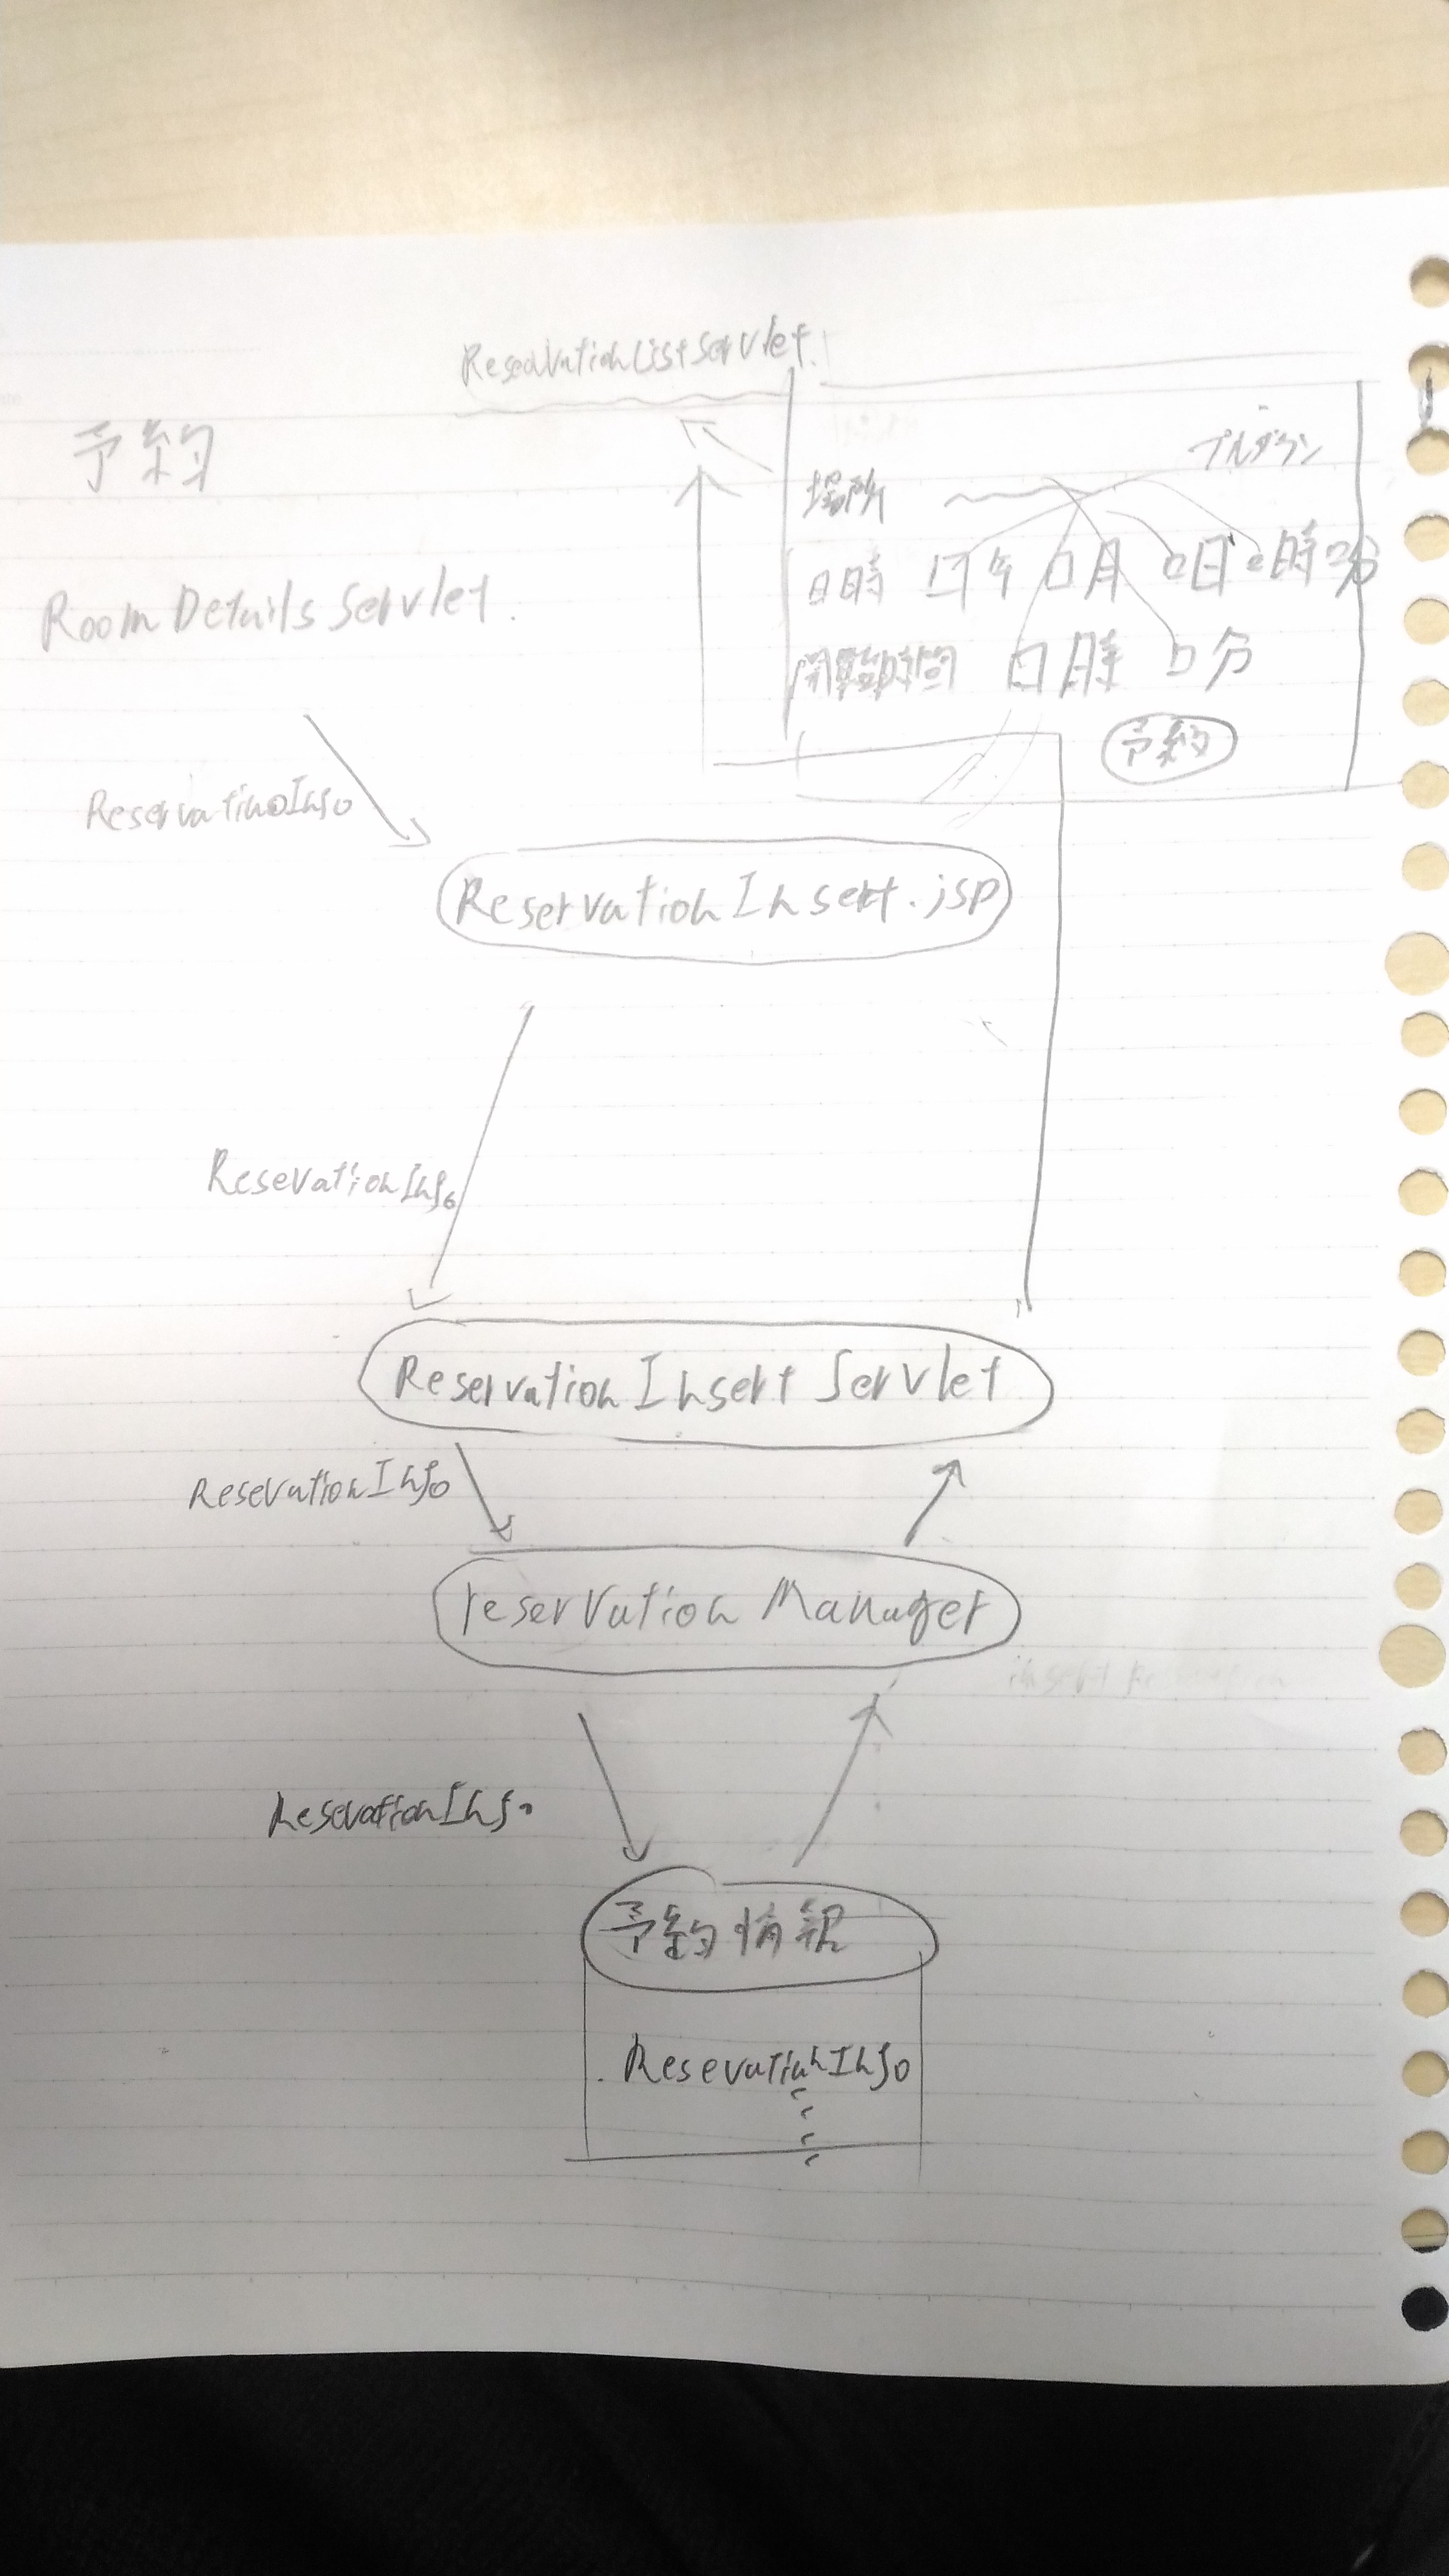 ReservationListServlet.
予約
プルダウン
場所
日時 □年 □月 □日 □時 □分
RoomDetailsServlet.
時間 □時 □分
予約
ReservationInfo
ReservationInsert.jsp
ReservationInfo
ReservationInsertServlet
ReservationInfo
reservationManager
insert
ReservationInfo
予約情報
ReservationInfo